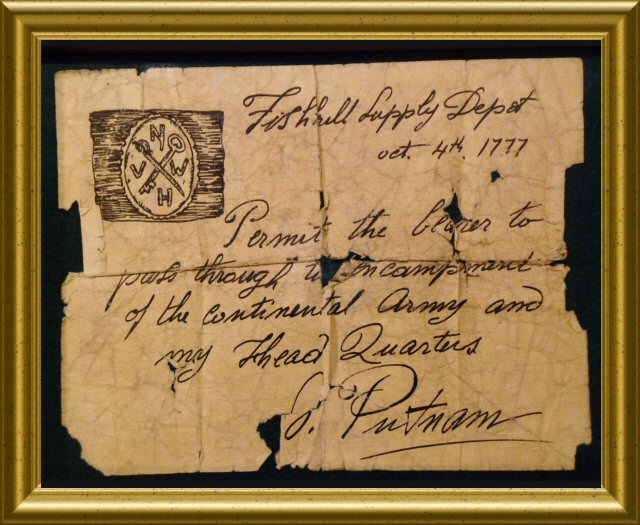 Fishkill Supply Depot
oct. 4th. 1777
Permit the bearer to
pass through the encampment
of the continental Army and
my Head Quarters
I. Putnam